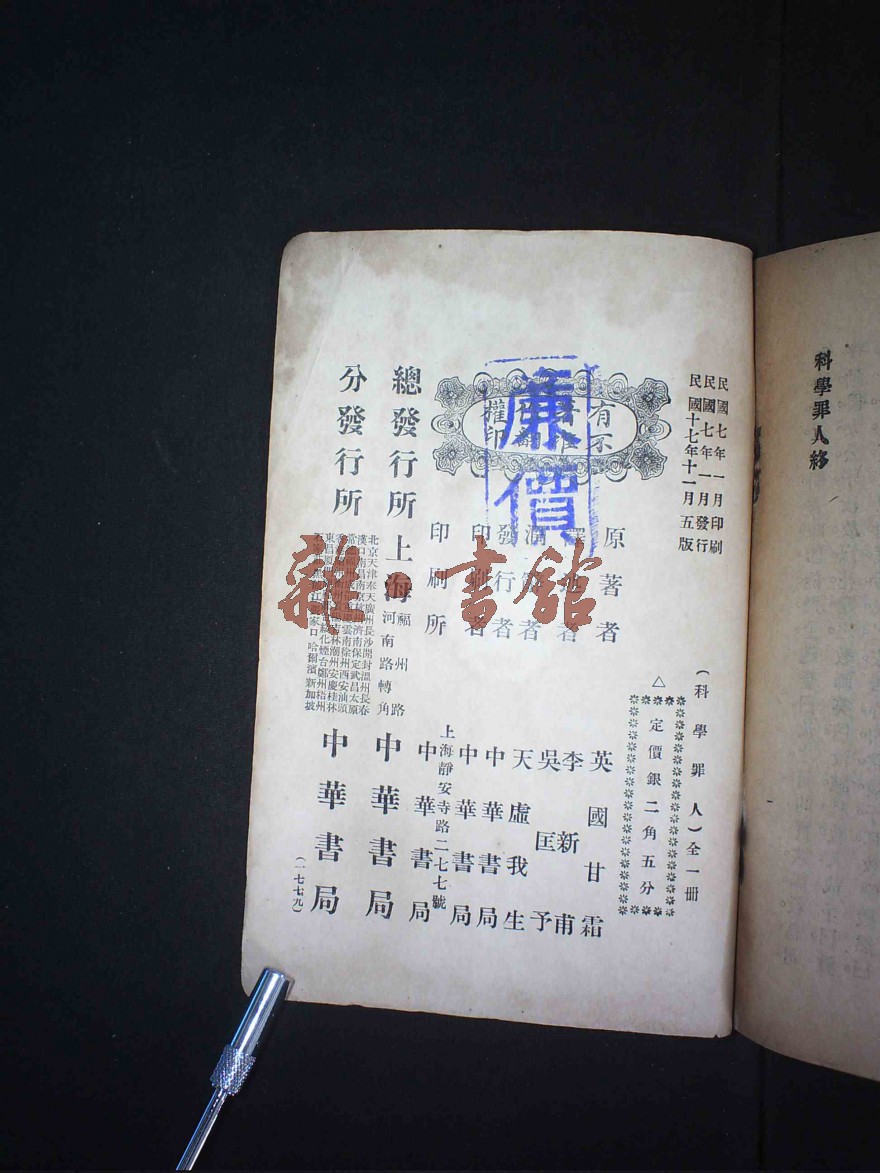 科學罪人終
民國七年一月印刷
民國七年一月發行
民國十七年十一月五版
(科學罪人)全一冊
△定價銀二角五分
有不
權印
廉價
原著者 英國甘霜
者 李新甫
吳匡予
者 天虛我生
發行者 中華書局
印刷者 中華書局
印刷所 上海靜安寺路二七七號 中華書局
總發行所 上海 福州路河南路轉角 中華書局
分發行所
北京天津奉天廣州長沙開封溫州長春
中華書局
(一七七九)
雜·書館